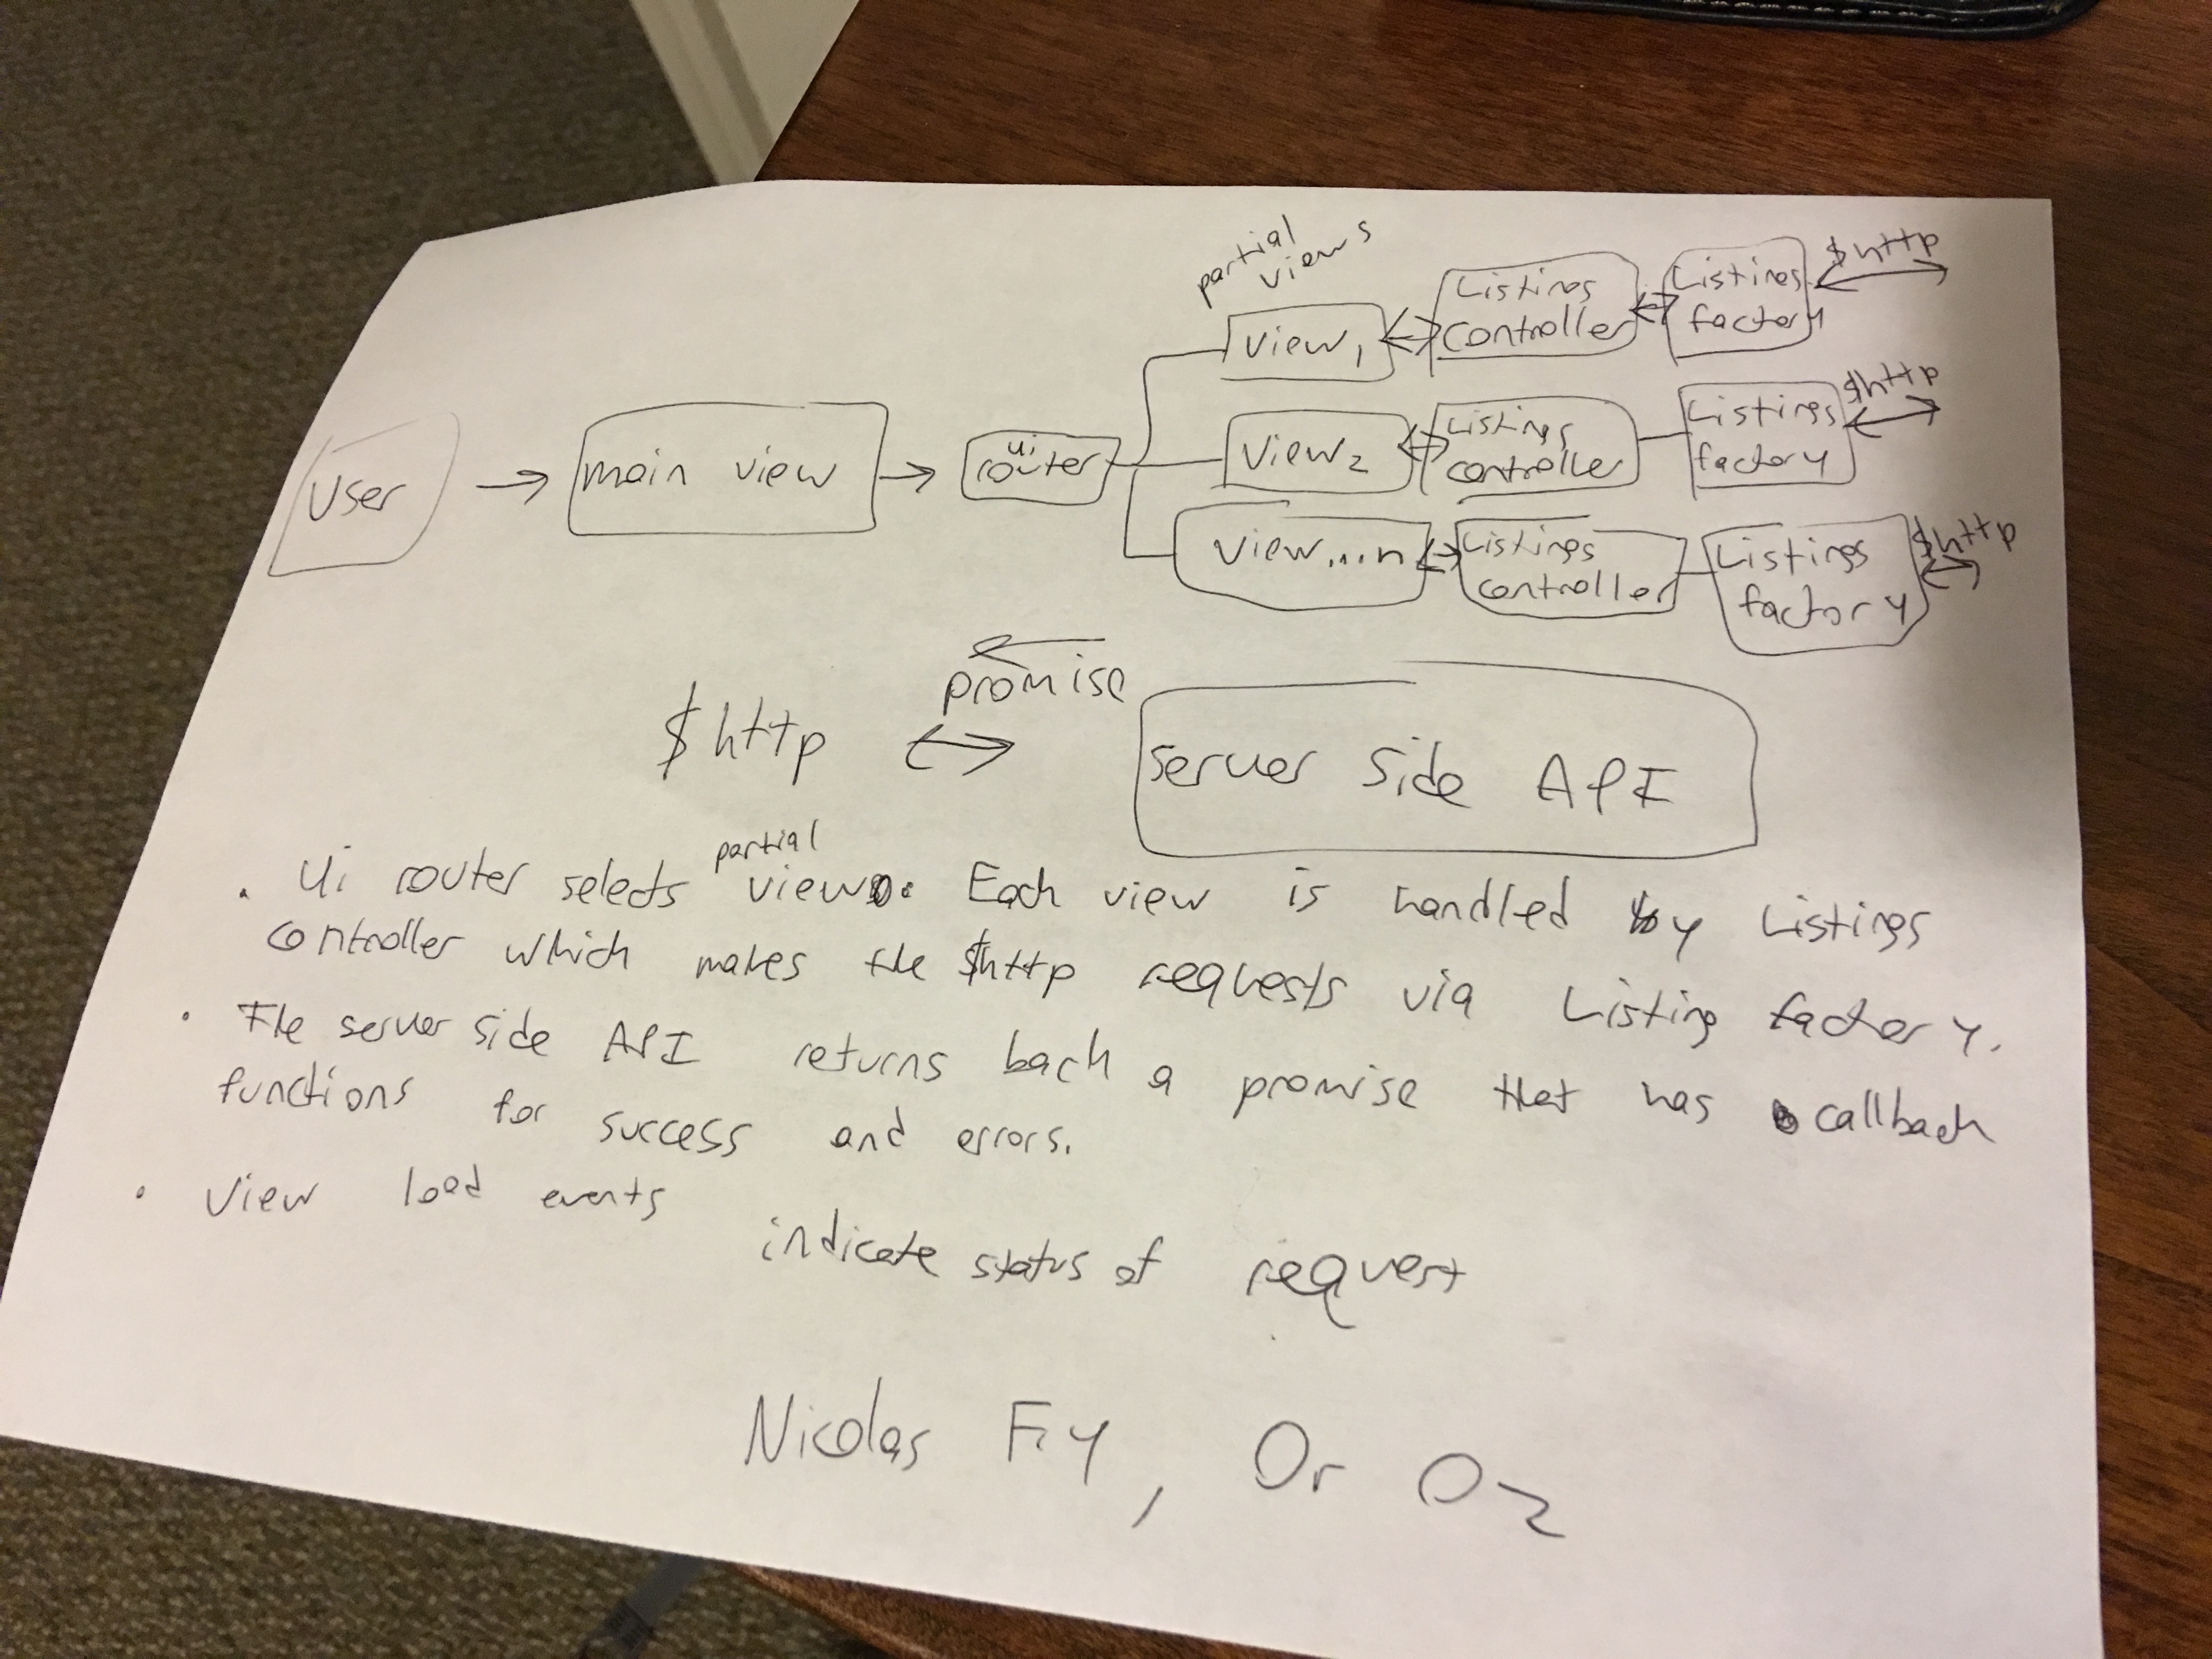 partial
views
View1
Listings
controller
Listings
factory
$http
User
main view
ui
router
View2
Listings
controller
Listings
factory
$http
View...n
Listings
controller
Listings
factory
$http
promise
$http
Server Side API
partial
• Ui router selects view. Each view is handled by Listings
controller which makes the $http requests via Listing factory.
• The server side API returns back a promise that has callback
functions for success and errors.
• View load events
indicate status of request
Nicolas Fry, Or Oz